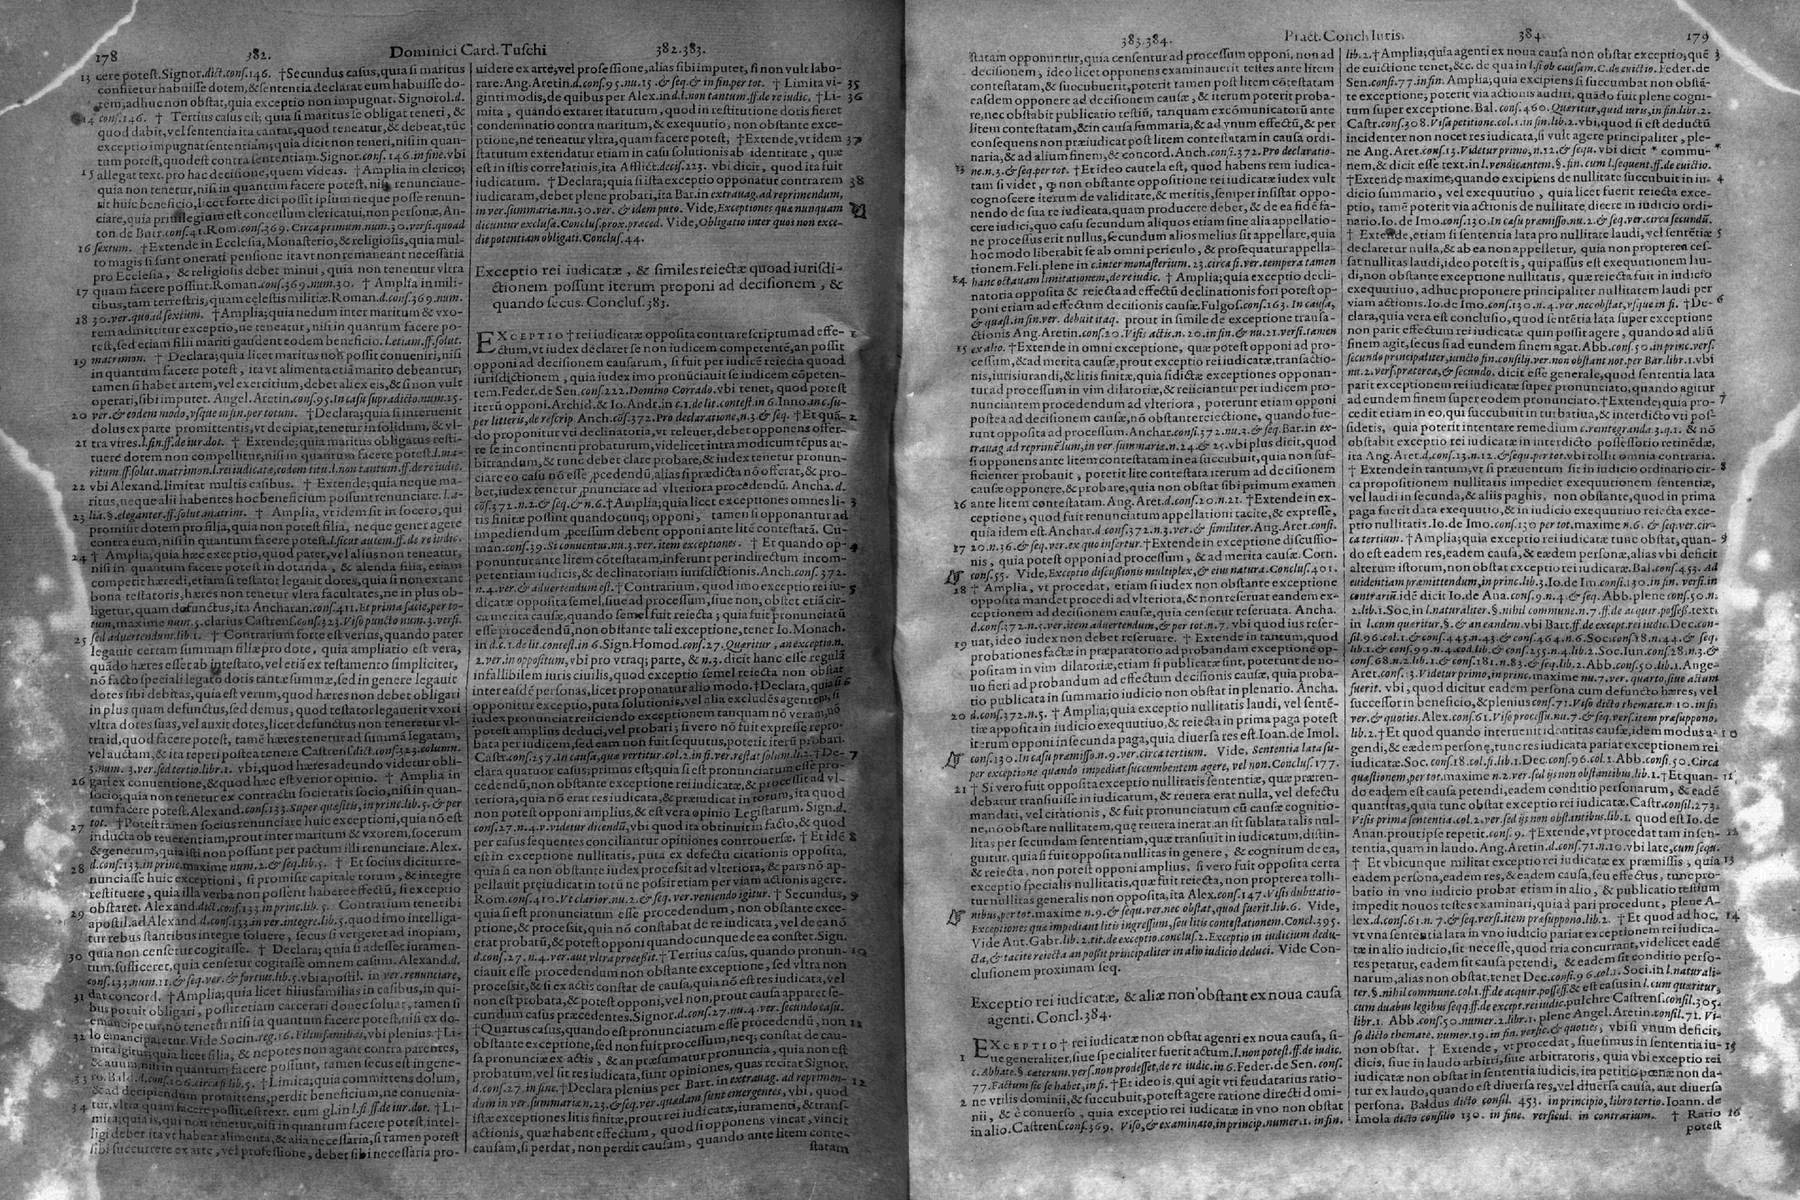 178
382.
Dominici Card. Tuschi
382.383.
13 cere potest. Signor. dict. conf. 146. †Secundus casus, quia si maritus
confitetur habuisse dotem, & sententia declarat eum habuisse do-
tem, adhuc non obstat, quia exceptio non impugnat. Signorol. d.
14 conf. 146. † Tertius casus est; quia si maritus se obligat teneri, &
quod dabit, vel sententia ita cantat, quod teneatur, & debeat, tūc
exceptio impugnat sententiam; quia dicit non teneri, nisi in quan-
tum potest, quod est contra sententiam. Signor. conf. 146. in fine. vbi
15 allegat text. pro hac decisione, quem videas. †Amplia in clerico;
quia non tenetur, nisi in quantum facere potest, nisi renunciaue-
rit huic beneficio, licet forte dici possit ipsum neque posse renun-
ciare, quia priuilegium est concessum clericatui, non personæ, An-
ton de Butr. conf. 41. Rom. conf. 369. Circa primum num. 30. versi. quoad
16 sextum. †Extende in Ecclesia, Monasterio, & religiosis, quia mul-
to magis si sunt onerati pensione ita vt non remaneant necessaria
pro Ecclesia, & religiosis debet minui, quia non tenentur vltra
17 quam facere possint. Roman. conf. 369. num. 30. †Amplia in mili-
tibus, tam terrestris, quam celestis militiæ. Roman. d. conf. 369. num.
18 30. ver. quo ad sextum. †Amplia; quia nedum inter maritum & vxo-
rem admittitur exceptio, ne teneatur, nisi in quantum facere po-
test, sed etiam filii mariti gaudent eodem beneficio. l. etiam. ff. solut.
19 matrimon. † Declara; quia licet maritus non possit conueniri, nisi
in quantum facere potest, ita vt alimenta etiā marito debeantur,
tamen si habet artem, vel exercitium, debet ali ex eis, & si non vult
operari, sibi imputet. Angel. Aretin. conf. 95. In casu supradicto num. 15.
20 ver. & eodem modo, vsque in fin. per totum. †Declara; quia si interuenit
dolus ex parte promittentis, vt decipiat, tenetur in solidum, & vl-
21 tra vires. l. fin. ff. de iur. dot. † Extende; quia maritus obligatus resti-
tuere dotem non compellitur, nisi in quantum facere potest. l. ma-
ritum. ff. solut. matrimon. l. rei iudicatæ, eodem titu. l. non tantum. ff. de re iudic.
22 vbi Alexand. limitat multis casibus. † Extende; quia neque ma-
ritus, neque alii habentes hoc beneficium possunt renunciare. l. a-
23 lia. §. eleganter. ff. solut. matrim. † Amplia, vt idem sit in socero, qui
promisit dotem pro filia, quia non potest filia, neque gener agere
contra eum, nisi in quantum facere potest. l. sicut autem. ff. de re iudic.
24 † Amplia; quia hæc exceptio, quod pater, vel alius non teneatur,
nisi in quantum facere potest in dotanda, & alenda filia, etiam
competit hæredi, etiam si testator legauit dotes, quia si non extant
bona testatoris, hæres non tenetur vltra facultates, ne in plus ob-
ligetur, quam defunctus, ita Ancharan. conf. 411. Et prima facie, per to-
tum, maxime num. 3. clarius Castrens. conf. 323. Viso puncto num. 3. versi.
25 sed aduertendum. lib. 1. † Contrarium forte est verius, quando pater
legauit certam summam filiæ pro dote, quia ampliatio est vera,
quādo hæres esset ab intestato, vel etiā ex testamento simpliciter,
nō facto speciali legato dotis tantæ summæ, sed in genere legauit
dotes sibi debitas, quia est verum, quod hæres non debet obligari
in plus quam defunctus, sed demus, quod testator legauerit vxori
vltra dotes suas, vel auxit dotes, licet defunctus non teneretur vl-
tra id, quod facere potest, tamē hæres tenetur ad summā legatam,
vel auctam, & ita reperi postea tenere Castrens. dict. conf. 323. column.
3. num. 3. ver. sed tertio. libr. 1. vbi, quod hæres adeundo videtur obli-
26 gari ex conuentione, & quod hæc est verior opinio. † Amplia in
socio; quia non tenetur ex contractu societatis socio, nisi in quan-
tum facere potest. Alexand. conf. 133. Super quæsitis, in princ. lib. 5. & per
27 tot. †Potest tamen socius renunciare huic exceptioni, quia nō est
inducta ob reuerentiam, prout inter maritum & vxorem, socerum
& generum, quia isti non possunt per pactum illi renunciare. Alex.
28 d. conf. 133. in princ. maxime num. 2. & seq. lib. 5. † Et socius dicitur re-
nunciasse huic exceptioni, si promisit capitale totum, & integre
restituere, quia illa verba non possent habere effectū, si exceptio
obstaret. Alexand. dict. conf. 133. in princ. lib. 5. Contrarium tenet ibi
29 apostil. ad Alexand. d. conf. 133. in ver. integre. lib. 5. quod imo intelliga-
tur rebus stantibus integre soluere, secus si vergeret ad inopiam,
quia non censetur cogitasse. † Declara; quia si adesset iuramen-
30 tum, sufficeret, quia censetur cogitasse omnem casum. Alexand. d.
conf. 133. num. 11. & seq. ver. & fortius. lib. 5. vbi apostil. in ver. renunciare,
31 dat concord. †Amplia; quia licet filiusfamilias in casibus, in qui-
bus potuit obligari, possit etiam carcerari donec soluat, tamen si
emancipetur, nō tenetur nisi in quantum facere potest, nisi ex do-
32 lo emancipatur. Vide Socin. reg. 16. Filiusfamilias, vbi plenius. †Li-
mita igitur; quia licet filia, & nepotes non agant contra parentes,
& auum, nisi in quantum facere possunt, tamen secus est in gene-
33 ro. Bald. d. conf. 106. circa fi. lib. 5. †Limita; quia committens dolum,
& ad decipiendum promittens, perdit beneficium, ne conuenia-
34 tur, vltra quam facere possit. est text. cum gl. in l. fi. ff. de iur. dot. †Li-
mita; quia is, qui non tenetur, nisi in quantum facere potest, intel-
ligi debet ita vt habeat alimenta, & alia necessaria, si tamen potest
sibi succurrere ex arte, vel professione, debet sibi necessaria pro-
uidere ex arte, vel professione, alias sibi imputet, si non vult labo-
rare. Ang. Aretin. d. conf. 95. nu. 15. & seq. & in fin. per tot. † Limita vi- 35
ginti modis, de quibus per Alex. in d. l. non tantum. ff. de re iudic. †Li- 36
mita, quando extaret statutum, quod in restitutione dotis fieret
condemnatio contra maritum, & exequutio, non obstante exce-
ptione, ne teneatur vltra, quam facere potest, †Extende, vt idem 37
statutum extendatur etiam in casu solutionis ab identitate, quæ
est in istis correlatiuis, ita Afflict. decis. 223. vbi dicit, quod ita fuit
iudicatum. †Declara; quia si ista exceptio opponatur contra rem 38
iudicatam, debet plene probari, ita Bar. in extrauag. ad reprimendum,
in ver. summaria. nu. 30. ver. & idem puto. Vide, Exceptiones quæ nunquam
dicuntur exclusa. Conclus. prox. præced. Vide, Obligatio inter quos non exce-
die potentiam obligati. Conclus. 44.
Exceptio rei iudicatæ, & similes reiectæ quoad iurisdi-
ctionem possunt iterum proponi ad decisionem, &
quando secus. Conclus. 383.
EXCEPTIO †rei iudicatæ opposita contra rescriptum ad effe- 1
ctum, vt iudex declaret se non iudicem competentē, an possit
opponi ad decisionem causarum, si fuit per iudicē reiecta quoad
iurisdictionem, quia iudex imo pronūciauit se iudicem cōpeten-
tem. Feder. Sen. conf. 222. Domino Corrado. vbi tenet, quod potest
iterū opponi. Archid. & Io. Andr. in c. 1. de lit. contest. in 6. Inno. in c. su-
per litteris, de rescrip. Anch. conf. 372. Pro declaratione, n. 3. & seq. † Et quā- 2
do proponitur vti declinatoria, vt releuet, debet opponens offer-
re se in continenti probaturum, videlicet intra modicum tēpus ar-
bitrandum, & tunc debet clare probare, & iudex tenetur pronun-
ciare eo casu nō esse ꝓcedendū, alias si prædicta nō offerat, & pro-
bet, iudex tenetur ꝓnunciare ad vlteriora procedendū. Ancha. d.
cōf. 372. n. 2. & seq. & n. 6. †Amplia; quia licet exceptiones omnes li- 3
tis finitæ possint quandocunq; opponi, tamen si opponantur ad
impediendum ꝓcessum debent opponi ante litē contestatā. Cu-
man. conf. 39. Si conuentus. nu. 3. ver. item exceptiones. † Et quando op- 4
ponuntur ante litem cōtestatam, inserunt per indirectum incom-
petentiam iudicis, & declinatoriam iurisdictionis. Anch. conf. 372.
n. 4. ver. & aduertendum est. †Contrarium, quod imo exceptio rei iu- 5
dicatæ opposita semel, siue ad processum, siue non, obstet etiā cir-
ca merita causæ, quando semel fuit reiecta; quia fuit pronunciatū
esse procedendū, non obstante tali exceptione, tenet Io. Monach.
in d. c. 1. de lit. contest. in 6. Sign. Homod. conf. 27. Quæritur, an exceptio. n.
2. ver. in oppositum, vbi pro vtraq; parte, & n. 3. dicit hanc esse regulā
infallibilem iuris ciuilis, quod exceptio semel reiecta non obstat
inter easdē personas, licet proponatur alio modo. †Declara, quia si 6
opponitur exceptio, puta solutionis, vel alia excludēs agentem, si
iudex pronunciat reiiciendo exceptionem tanquam nō veram, nō
potest amplius deduci, vel probari; si vero nō fuit expresse repro-
bata per iudicem, sed eam non fuit sequutus, poterit iterū probari.
Castr. conf. 257. In causa, quæ vertitur. col. 2. in fi. ver. restat solum. lib. 2. †De- 7
clara quatuor casus; primus est; quia si est pronunciatum esse pro-
cedendū, non obstante exceptione rei iudicatæ, & processit ad vl-
teriora, quia nō erat res iudicata, & præiudicat in totum, ita quod
non potest opponi amplius, & est vera opinio Legistarum. Sign. d.
conf. 27. n. 4. v. videtur dicendū, vbi quod ita obtinuit in facto, & quod
per casus sequentes conciliantur opiniones controuersæ. † Et idē 8
est in exceptione nullitatis, puta ex defectu citationis opposita,
quia si ea non obstante iudex processit ad vlteriora, & pars nō ap-
pellauit præiudicat in totū ne possit etiam per viam actionis agere.
Rom. conf. 410. Vt clarior. nu. 2. & seq. ver. veniendo igitur. † Secundus, 9
quia si est pronunciatum esse procedendum, non obstante exce-
ptione, & processit, quia nō constabat de re iudicata, vel de ea nō
erat probatū, & potest opponi quandocunque de ea constet. Sign.
d. conf. 27. n. 4. ver. aut vltra processit. †Tertius casus, quando pronun- 10
ciauit esse procedendum non obstante exceptione, sed vltra non
processit, & si ex actis constat de causa, quia nō est res iudicata, vel
non est probata, & potest opponi, vel non, prout causa apparet se-
cundum casus præcedentes. Signor. d. conf. 27. nu. 4. ver. secundo casu.
†Quartus casus, quando est pronunciatum esse procedendū, non 11
obstante exceptione, sed non fuit processum, neq; constat de cau-
sa pronunciæ ex actis, & an præsumatur pronuncia, quia non est
probatum, vel sit res iudicata, sunt opiniones, quas recitat Signor.
d. conf. 27. in fine. †Declara plenius per Bart. in extrauag. ad reprimen- 12
dum in ver. summaria. n. 23. & seq. ver. quædam sunt emergentes, vbi, quod
istæ exceptiones litis finitæ, prout rei iudicatæ, iuramenti, & trans-
actionis, quæ habent effectum, quod si opponens vincat, vincit
causam, si perdat, non perdit causam, quando ante litem conte-
statam
383.384.
Pract. Concl. Iuris.
384.
179
statam opponuntur, quia censentur ad processum opponi, non ad
decisionem, ideo licet opponens examinauerit testes ante litem
contestatam, & succubuerit, poterit tamen post litem cōtestatam
easdem opponere ad decisionem causæ, & iterum poterit proba-
re, nec obstabit publicatio testiū, tanquam excōmunicatorū ante
litem contestatam, & in causa summaria, & ad vnum effectū, & per
consequens non præiudicat post litem contestatam in causa ordi-
naria, & ad alium finem, & concord. Anch. conf. 372. Pro declaratio-
13 ne. n. 3. & seq. per tot. †Et ideo cautela est, quod habens rem iudica-
tam si videt, ꝙ non obstante oppositione rei iudicatæ iudex vult
cognoscere iterum de validitate, & meritis, semper insistat oppo-
nendo de sua re iudicata, quam producere debet, & de ea fidē fa-
cere iudici, quo casu secundum aliquos etiam sine alia appellatio-
ne processus erit nullus, secundum alios melius sit appellare, quia
hoc modo liberabit se ab omni periculo, & prosequatur appella-
tionem. Feli. plene in c. inter monasterium. 23. circa fi. ver. tempera tamen
14 hanc octauam limitationem, de re iudic. † Amplia; quia exceptio decli-
natoria opposita & reiecta ad effectū declinationis fori potest op-
poni etiam ad effectum decisionis causæ. Fulgos. conf. 163. In causa,
& quæst. in fin. ver. debuit itaq. prout in simile de exceptione transa-
ctionis Ang. Aretin. conf. 20. Visis actis. n. 20. in fin. & nu. 21. versi. tamen
15 ex alio. †Extende in omni exceptione, quæ potest opponi ad pro-
cessum, & ad merita causæ, prout exceptio rei iudicatæ, transactio-
nis, iurisiurandi, & litis finitæ, quia si dictæ exceptiones opponan-
tur ad processum in vim dilatoriæ, & reiiciantur per iudicem pro-
nunciantem procedendum ad vlteriora, poterunt etiam opponi
postea ad decisionem causæ, nō obstante reiectione, quando fue-
runt opposita ad processum. Anchar. conf. 372. nu. 3. & seq. Bar. in ex-
trauag. ad reprimēdum, in ver. summaria. n. 24. & 25. vbi plus dicit, quod
si opponens ante litem contestatam in ea succubuit, quia non suf-
ficienter probauit, poterit lite contestata iterum ad decisionem
causæ opponere, & probare, quia non obstat sibi primum examen
16 ante litem contestatam. Ang. Aret. d. conf. 20. n. 21. †Extende in ex-
ceptione, quod fuit renunciatum appellationi tacite, & expresse,
quia idem est. Anchar. d. conf. 372. n. 3. ver. & similiter. Ang. Aret. confi.
17 20. n. 36. & seq. ver. ex quo insertur. †Extende in exceptione discussio-
nis, quia potest opponi ad processum, & ad merita causæ. Corn.
conf. 55. Vide, Exceptio discussionis multiplex, & eius natura. Conclus. 401.
18 † Amplia, vt procedat, etiam si iudex non obstante exceptione
opposita mandet procedi ad vlteriora, & non reseruat eandem ex-
ceptionem ad decisionem causæ, quia censetur reseruata. Ancha.
d. conf. 372. n. 5. ver. item aduertendum, & per tot. n. 7. vbi quod ius reser-
19 uat, ideo iudex non debet reseruare. † Extende in tantum, quod
probationes factæ in præparatorio ad probandam exceptionē op-
positam in vim dilatoriæ, etiam si publicatæ sint, poterunt de no-
uo fieri ad probandum ad effectum decisionis causæ, quia proba-
tio publicata in summario iudicio non obstat in plenario. Ancha.
20 d. conf. 372. n. 5. † Amplia; quia exceptio nullitatis laudi, vel sentē-
tiæ apposita in iudicio exequutiuo, & reiecta in prima paga potest
iterum opponi in secunda paga, quia diuersa res est. Ioan. de Imol.
conf. 130. In casu præmisso. n. 9. ver. circa tertium. Vide, Sententia lata su-
per exceptione quando impediat succumbentem agere, vel non. Conclus. 177.
21 † Si vero fuit opposita exceptio nullitatis sententiæ, quæ præten-
debatur transiuisse in iudicatum, & reuera erat nulla, vel defectu
mandati, vel citationis, & fuit pronunciatum cū causæ cognitio-
ne, nō obstare nullitatem, quę reuera inerat an sit sublata talis nul-
litas per secundam sententiam, quæ transiuit in iudicatum, distin-
guitur, quia si fuit opposita nullitas in genere, & cognitum de ea,
non potest opponi amplius, si vero fuit opposita certa
exceptio specialis nullitatis, quæ fuit reiecta, non propterea tolli-
tur nullitas generalis non opposita, ita Alex. conf. 147. Visis dubitatio-
nibus, per tot. maxime n. 9. & sequ. ver. nec obstat, quod fuerit. lib. 6. Vide,
Exceptiones quæ impediant litis ingressum, seu litis contestationem. Concl. 395.
Vide Ant. Gabr. lib. 2. tit. de exceptio. conclus. 2. Exceptio in iudicium dedu-
cta, & tacite reiecta an possit principaliter in alio iudicio deduci. Vide Con-
clusionem proximam seq.
Exceptio rei iudicatæ, & aliæ non obstant ex noua causa
agenti. Concl. 384.
1 EXCEPTIO † rei iudicatæ non obstat agenti ex noua causa, si-
ue generaliter, siue specialiter fuerit actum. l. non potest. ff. de iudic.
c. Abbate. §. cæterum. vers. non prodesset, de re iudic. in 6. Feder. de Sen. conf.
77. Factum sic se habet, in fi. † Et ideo is, qui agit vti feudatarius ratio-
2 ne vtilis dominii, & succubuit, potest agere ratione directi domi-
nii, & ē conuerso, quia exceptio rei iudicatæ in vno non obstat
in alio. Castrens. conf. 369. Viso, & examinato, in princip. numer. 1. in fin.
lib. 2. †Amplia; quia agenti ex noua causa non obstat exceptio, quē 3
de euictione tenet, & c. de qua in l. si ob causam. C. de euictio. Feder. de
Sen. conf. 77. in fin. Amplia; quia excipiens si succumbat non obstā-
te exceptione, poterit via actionis audiri, quādo fuit plene cogni-
tum super exceptione. Bal. conf. 460. Quæritur, quid iuris, in fin. lib. 2.
Castr. conf. 308. Visa petitione. col. 1. in fin. lib. 2. vbi, quod si est deductū
incidenter non nocet res iudicata, si vult agere principaliter, ple-
ne Ang. Aret. conf. 13. Videtur primo, n. 12. & sequ. vbi dicit * commu-
nem, & dicit esse text. in l. vendicantem. §. fin. cum l. sequent. ff. de euictio.
†Extende maxime, quando excipiens de nullitate succubuit in iu- 4
dicio summario, vel exequutiuo, quia licet fuerit reiecta exce-
ptio, tamē poterit via actionis de nullitate, dicere in iudicio ordi-
nario. Io. de Imo. conf. 130. In casu præmisso. nu. 2. & seq. ver. circa secundū.
† Extende, etiam si sententia lata pro nullitate laudi, vel sentētiæ 5
declaretur nulla, & ab ea non appelletur, quia non propterea ces-
sat nullitas laudi, ideo potest is, qui passus est exequutionem lau-
di, non obstante exceptione nullitatis, quæ reiecta fuit in iudicio
exequutiuo, adhuc proponere principaliter nullitatem laudi per
viam actionis. Io. de Imo. conf. 130. n. 4. ver. nec obstat, vsque in fi. †De- 6
clara, quia vera est conclusio, quod sentētia lata super exceptione
non parit effectum rei iudicatæ quin possit agere, quando ad aliū
finem agit, secus si ad eundem finem agat. Abb. conf. 50. in princ. vers.
secundo principaliter, iuncto fin. consilij. ver. non obstant not. per Bar. libr. 1. vbi
nu. 2. vers. præterea, & secundo. dicit esse generale, quod sententia lata
parit exceptionem rei iudicatæ super pronunciato, quando agitur
ad eundem finem super eodem pronunciato. †Extende; quia pro- 7
cedit etiam in eo, qui succubuit in turbatiua, & interdicto vti pos-
sidetis, quia poterit intentare remedium c. reintegranda. 3. q. 1. & nō
obstabit exceptio rei iudicatæ in interdicto possessorio retinēdæ,
ita Ang. Aret. d. conf. 13. n. 12. & sequ. per tot. vbi tollit omnia contraria.
† Extende in tantum, vt si præuentum sit in iudicio ordinario cir- 8
ca propositionem nullitatis impediet exequutionem sententiæ,
vel laudi in secunda, & aliis paghis, non obstante, quod in prima
paga fuerit data exequutio, & in iudicio exequutiuo reiecta exce-
ptio nullitatis. Io. de Imo. conf. 130 per tot. maxime n. 6. & seq. ver. cir-
ca tertium. †Amplia; quia exceptio rei iudicatæ tunc obstat, quan- 9
do est eadem res, eadem causa, & eædem personæ, alias vbi deficit
alterum istorum, non obstat exceptio rei iudicatæ. Bal. conf. 453. Ad
euidentiam præmittendum, in princ. lib. 3. Io. de Imo. conf. 130. in fin. versi. in
contrariū. idē dicit Io. de Ana. conf. 9. n. 4. & seq. Abb. plene conf. 50. n.
2. lib. 1. Soc. in l. naturaliter. §. nihil commune. n. 7. ff. de acquir. possess. text.
in l. cum quæritur. §. & an eandem. vbi Bart. ff. de except. rei iudic. Dec. con-
sil. 96. col. 1. & conf. 445. n. 43. & conf. 464. n. 6. Soc. conf. 18. n. 44. & seq.
lib. 1. & conf. 99. n. 4. cod. lib. & conf. 255. n. 4. lib. 2. Soc. Iun. conf. 28. n. 3. &
conf. 68. n. 2. lib. 1. & conf. 181. n. 83. & seq. lib. 2. Abb. conf. 50. lib. 1. Ange-
Aret. conf. 13. Videtur primo, in princ. maxime nu. 7. ver. quarto, siue actum
fuerit. vbi, quod dicitur eadem persona cum defuncto hæres, vel
successor in beneficio, & plenius conf. 71. Viso dicto themate. n. 10. in fin.
ver. & quoties. Alex. conf. 61. Viso processu. nu. 7. & seq. vers. item præsuppono.
lib. 2. †Et quod quando interuenit identitas causæ, idem modus a- 10
gendi, & eædem personę, tunc res iudicata pariat exceptionem rei
iudicatæ. Soc. conf. 18. col. fi. lib. 1. Dec. conf. 96. col. 1. Abb. conf. 50. Circa
quæstionem, per tot. maxime n. 2. ver. sed ijs non obstantibus. lib. 1. †Et quan- 11
do eadem est causa petendi, eadem conditio personarum, & eadē
quantitas, quia tunc obstat exceptio rei iudicatæ. Castr. consil. 273.
Visis prima sententia. col. 2. ver. sed ijs non obstantibus. lib. 1. quod est Io. de
Anan. prout ipse repetit. conf. 9. †Extende, vt procedat tam in sen- 12
tentia, quam in laudo. Ang. Aretin. d. conf. 71. n. 10. vbi late, cum sequ.
† Et vbicunque militat exceptio rei iudicatæ ex præmissis, quia 13
eadem persona, eadem res, & eadem causa, seu effectus, tunc pro-
batio in vno iudicio probat etiam in alio, & publicatio testium
impedit nouos testes examinari, quia à pari procedunt, plene A-
lex. d. conf. 61. n. 7. & seq. versi. item præsuppono. lib. 2. †Et quod ad hoc, 14
vt vna sententia lata in vno iudicio pariat exceptionem rei iudica-
tæ in alio iudicio, sit necesse, quod tria concurrant, videlicet eadē
res petatur, eadem sit causa petendi, & eadem sit conditio perso-
narum, alias non obstat. tenet Dec. conf. 96. col. 1. Soci. in l. naturali-
ter. §. nihil commune. col. 1. ff. de acquir. possess. & est casus in l. cum quæritur,
cum duabus legibus seqq. ff. de except. rei iudic. pulchre Castrens. consil. 305.
libr. 1. Abb. conf. 50. numer. 2. libr. 1. plene Angel. Aretin. conf. 71. Vi-
so dicto themate. numer. 19. in fin. versic. & quoties, vbi si vnum deficit,
non obstat. † Extende, vt procedat, siue simus in sententia iu- 15
dicis, siue in laudo arbitri, siue arbitratoris, quia vbi exceptio rei
iudicatæ non obstat in sententia iudicis, ita petitio pœnæ non da-
tur ex laudo, quando est diuersa res, vel diuersa causa, aut diuersa
persona. Baldus dicto consil. 453. in principio, libro tertio. Ioann. de
Imola dicto consilio 130. in fine. versicul. in contrarium. † Ratio 16
potest